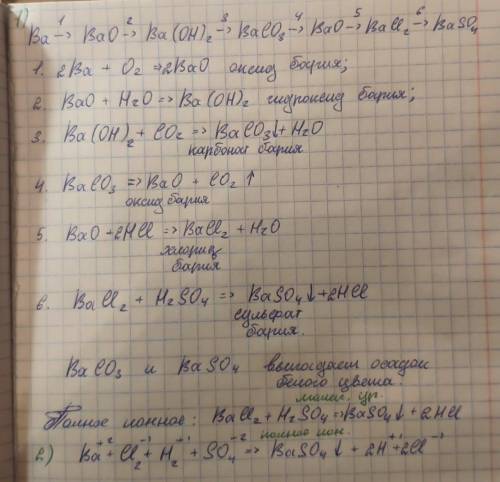 1) Ba →¹ BaO →² Ba(OH)₂ →³ BaCO₃ →⁴ BaO →⁵ BaCl₂ →⁶ BaSO₄
1. 2Ba + O₂ ⇒ 2BaO оксид бария;
2. BaO + H₂O ⇒ Ba(OH)₂ гидроксид бария;
3. Ba(OH)₂ + CO₂ ⇒ BaCO₃↓ + H₂O
карбонат бария
4. BaCO₃ ⇒ BaO + CO₂ ↑
оксид бария
5. BaO + 2HCl ⇒ BaCl₂ + H₂O
хлорид
бария
6. BaCl₂ + H₂SO₄ ⇒ BaSO₄↓ + 2HCl
сульфат
бария.
BaCO₃ и BaSO₄ выпадает осадок
белого цвета.
Полное ионное: BaCl₂ + H₂SO₄ ⇒ BaSO₄↓ + 2HCl
полное ион.
2) Ba⁺² + Cl₂⁻¹ + H₂⁺¹ + SO₄⁻² ⇒ BaSO₄ ↓ + 2H⁺¹ + 2Cl⁻¹